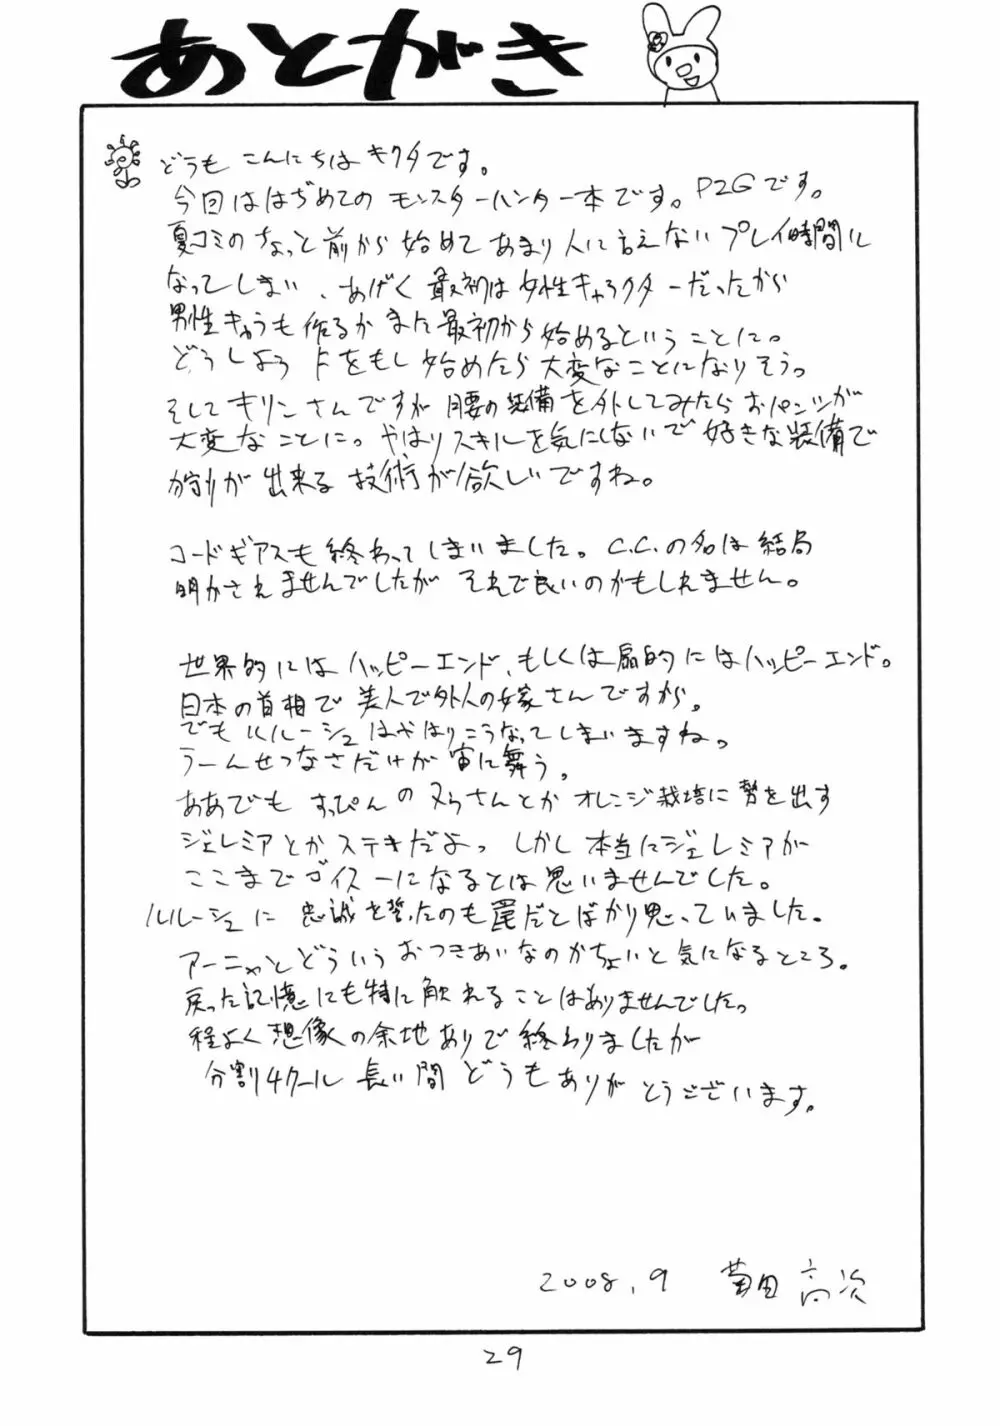 あとがき
どうも こんにちは キクタです。
今回ははぢめての モンスターハンター本です。P2Gです。
夏コミのちょっと前から始めてあまり人に言えないプレイ時間に
なってしまい、あげく最初は女性キャラクターだったから
男性キャラも作るかまた最初から始めるということに。
どうしよう Fをもし始めたら大変なことになりそう。
そしてキリンさんですが腰の装備を外してみたらおパンツが
大変なことに。やはりスキルを気にしないで好きな装備で
狩りが出来る技術が欲しいですね。
コードギアスも終わってしまいました。C.C.の名は結局
明かされませんでしたが それで良いのかもしれません。
世界的にはハッピーエンド、もしくは扇的にはハッピーエンド。
日本の首相で美人で外人の嫁さんですが。
でもルルーシュはやはりこうなってしまいますね。
うーんせつなさだけが宙に舞う。
ああでも すっぴんのヌゥさんとかオレンジ栽培に勢を出す
ジェレミアとかステキだよっ しかし本当にジェレミアが
ここまでゴイスーになるとは思いませんでした。
ルルーシュに 忠誠を誓ったのも罠だとばかり思っていました。
アーニャとどういうおつきあいなのかちょいと気になるところ。
戻った記憶にも特に触れることはありませんでした。
程よく想像の余地ありで終わりましたが
分割4クール 長い間 どうもありがとうございます。
2008.9 菊田 高次
29